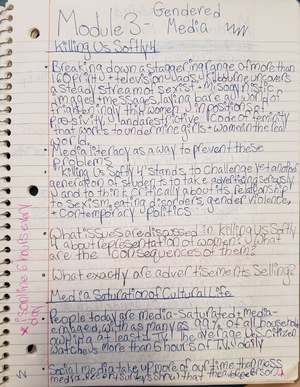 Gendered
Module 3- Media
Killing Us Softly 4
• Breaking down a staggering range of more than
160 print + television ads, Kilbourne uncovers
a steady stream of sexist + misogynistic
images + messages, laying bare a world of
frighteningly thin women in positions of
passivity, and a restrictive code of femininity
that works to undermine girls + women in the real
world.
• Media literacy as a way to prevent these
problems
• "Killing Us Softly 4" stands to challenge yet another
generation of students to take advertising seriously
and to think critically about its relationship
to sexism, eating disorders, gender violence,
+ contemporary politics
• What issues are discussed in Killing Us Softly
4 about representation of women? What
are the consequences of them?
• What exactly are advertisements selling?
Media Saturation of Cultural Life
• People today are media-saturated + media-
engaged, with as many as 99.% of all households
owning at least 1 TV. The average US citizen
watches more than 5 hours of TV daily
• Social media take up more of our time than mass
media. Recent surveys show that the
* is online 6 hours every
day